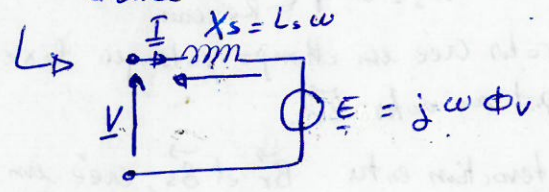 I Xs = Lsω
V
E = jωΦv